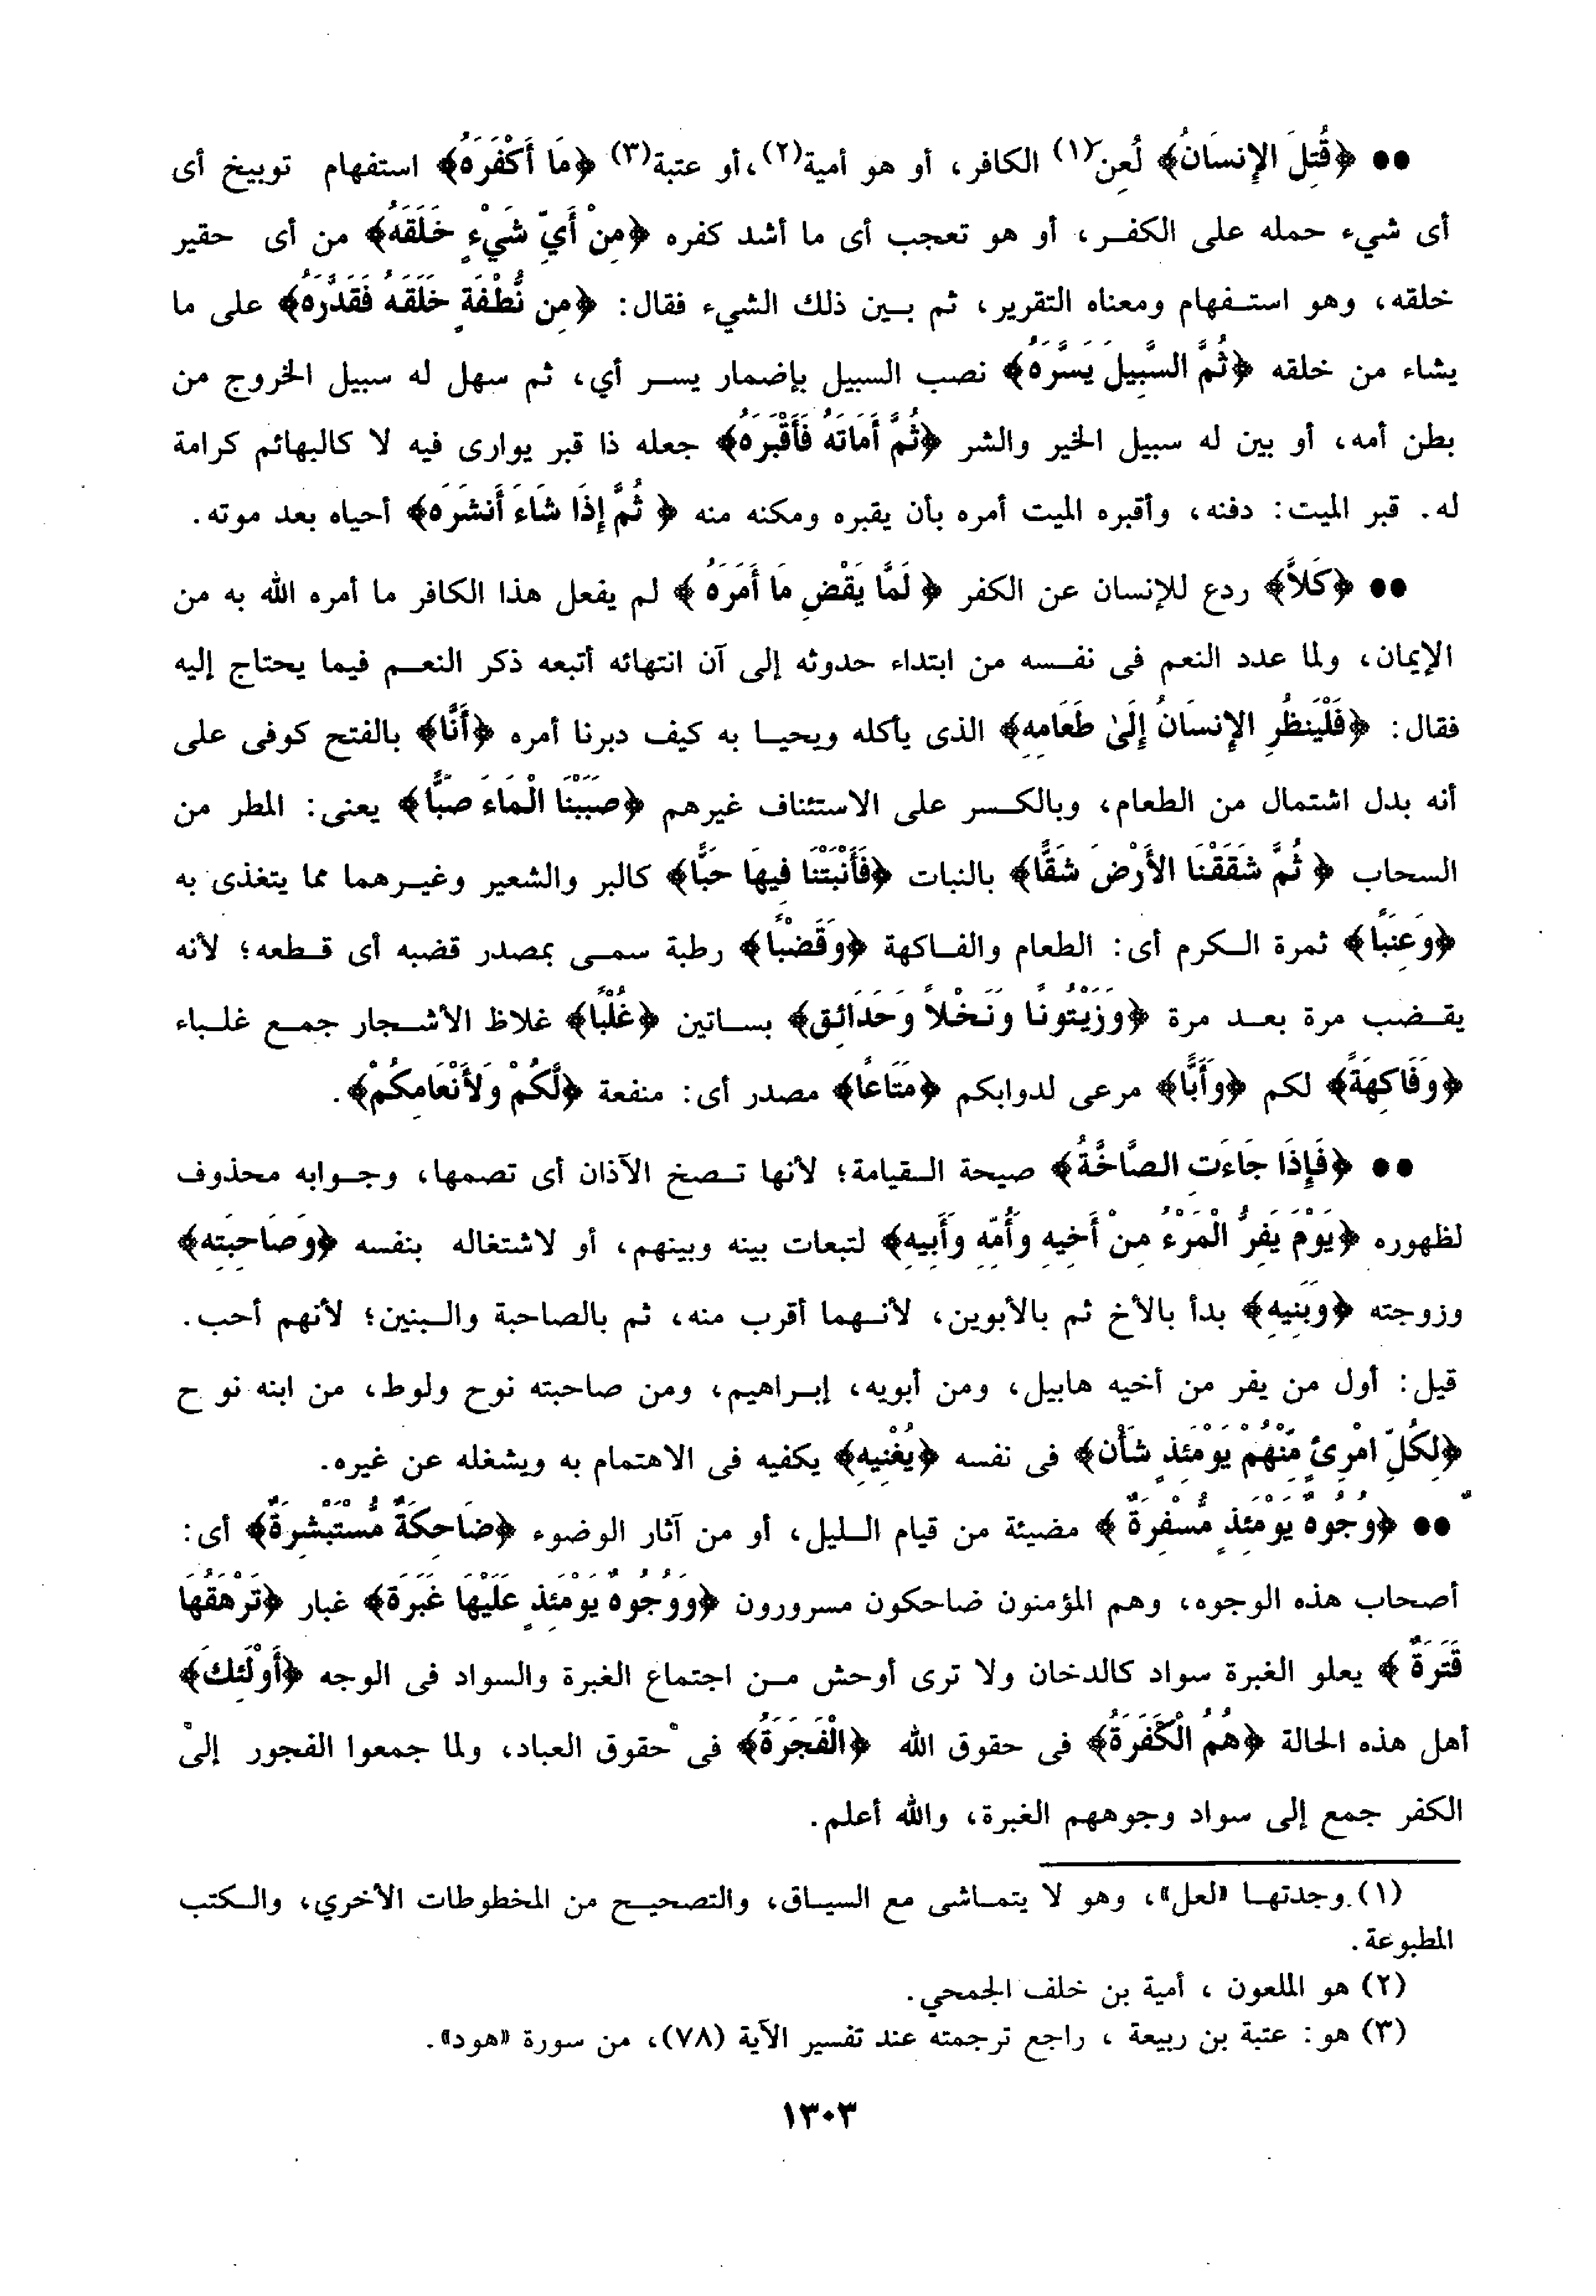 ●● ﴿قُتِلَ الإِنسَانُ﴾ لُعِن(١) الكافر، أو هو أمية(٢)، أو عتبة(٣) ﴿مَا أَكْفَرَهُ﴾ استفهام توبيخ أى
أى شيء حمله على الكفـر، أو هو تعجب أى ما أشد كفره ﴿مِنْ أَيِّ شَيْءٍ خَلَقَهُ﴾ من أى حقير
خلقه، وهو استـفهام ومعناه التقرير، ثم بـين ذلك الشيء فقال: ﴿مِن نُّطْفَةٍ خَلَقَهُ فَقَدَّرَهُ﴾ على ما
يشاء من خلقه ﴿ثُمَّ السَّبِيلَ يَسَّرَهُ﴾ نصب السبيل بإضمار يسـر أي، ثم سهل له سبيل الخروج من
بطن أمه، أو بين له سبيل الخير والشر ﴿ثُمَّ أَمَاتَهُ فَأَقْبَرَهُ﴾ جعله ذا قبر يوارى فيه لا كالبهائم كرامة
له. قبر الميت: دفنه، وأقبره الميت أمره بأن يقبره ومكنه منه ﴿ ثُمَّ إِذَا شَاءَ أَنشَرَه﴾ أحياه بعد موته.
●● ﴿كَلاَّ﴾ ردع للإنسان عن الكفر ﴿ لَمَّا يَقْضِ مَا أَمَرَهُ ﴾ لم يفعل هذا الكافر ما أمره الله به من
الإيمان، ولما عدد النعم فى نفـسه من ابتداء حدوثه إلى آن انتهائه أتبعه ذكر النعـم فيما يحتاج إليه
فقال: ﴿فَلْيَنظُرِ الإِنسَانُ إِلَىٰ طَعَامِهِ﴾ الذى يأكله ويحيـا به كيف دبرنا أمره ﴿أَنَّا﴾ بالفتح كوفى على
أنه بدل اشتمال من الطعام، وبالكـسر على الاستئناف غيرهم ﴿صَبَبْنَا الْمَاءَ صَبًّا﴾ يعنى: المطر من
السحاب ﴿ ثُمَّ شَقَقْنَا الأَرْضَ شَقًّا﴾ بالنبات ﴿فَأَنْبَتْنَا فِيهَا حَبًّا﴾ كالبر والشعير وغيـرهما مما يتغذى به
﴿وَعِنَبًا﴾ ثمرة الـكرم أى: الطعام والفـاكهة ﴿وَقَضْبًا﴾ رطبة سمـى بمصدر قضبه أى قـطعه؛ لأنه
يقـضب مرة بعـد مرة ﴿وَزَيْتُونًا وَنَخْلاً وَحَدَائِقَ﴾ بسـاتين ﴿غُلْبًا﴾ غلاظ الأشـجار جمـع غلـباء
﴿وَفَاكِهَةً﴾ لكم ﴿وَأَبًّا﴾ مرعى لدوابكم ﴿مَتَاعًا﴾ مصدر أى: منفعة ﴿لَّكُمْ وَلأَنْعَامِكُمْ﴾.
●● ﴿فَإِذَا جَاءَتِ الصَّاخَّةُ﴾ صيحة الـقيامة؛ لأنها تـصخ الآذان أى تصمها، وجـوابه محذوف
لظهوره ﴿يَوْمَ يَفِرُّ الْمَرْءُ مِنْ أَخِيهِ وَأُمِّهِ وَأَبِيهِ﴾ لتبعات بينه وبينهم، أو لاشتغاله بنفسه ﴿وَصَاحِبَتِه﴾
وزوجته ﴿وَبَنِيهِ﴾ بدأ بالأخ ثم بالأبوين، لأنـهما أقرب منه، ثم بالصاحبة والـبنين؛ لأنهم أحب.
قيل: أول من يفر من أخيه هابيل، ومن أبويه، إبـراهيم، ومن صاحبته نوح ولوط، من ابنه نو ح
﴿لِكُلِّ امْرِئٍ مِّنْهُمْ يَوْمَئِذٍ شَأْن﴾ فى نفسه ﴿يُغْنِيهِ﴾ يكفيه فى الاهتمام به ويشغله عن غيره.
●● ﴿وُجُوهٌ يَوْمَئِذٍ مُّسْفِرَةٌ ﴾ مضيئة من قيام الـليل، أو من آثار الوضوء ﴿ضَاحِكَةٌ مُّسْتَبْشِرَةٌ﴾ أى:
أصحاب هذه الوجوه، وهم المؤمنون ضاحكون مسرورون ﴿وَوُجُوهٌ يَوْمَئِذٍ عَلَيْهَا غَبَرَة﴾ غبار ﴿تَرْهَقُهَا
قَتَرَةٌ ﴾ يعلو الغبرة سواد كالدخان ولا ترى أوحش مـن اجتماع الغبرة والسواد فى الوجه ﴿أُوْلَئِكَ﴾
أهل هذه الحالة ﴿هُمُ الْكَفَرَةُ﴾ فى حقوق الله ﴿الْفَجَرَةُ﴾ فى حقوق العباد، ولما جمعوا الفجور إلى
الكفر جمع إلى سواد وجوههم الغبرة، والله أعلم.
(١) وجدتهـا «لعل»، وهو لا يتمـاشى مع السيـاق، والتصحيـح من المخطوطات الأخري، والـكتب
المطبوعة.
(٢) هو الملعون ، أمية بن خلف الجمحي.
(٣) هو: عتبة بن ربيعة ، راجع ترجمته عند تفسير الآية (٧٨)، من سورة «هود».
١٣٠٣